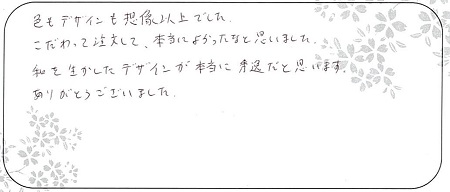 色もデザインも想像以上でした。
こだわって注文して、本当によかったなと思いました。
和を生かしたデザインが本当に素適だと思います。
ありがとうございました。